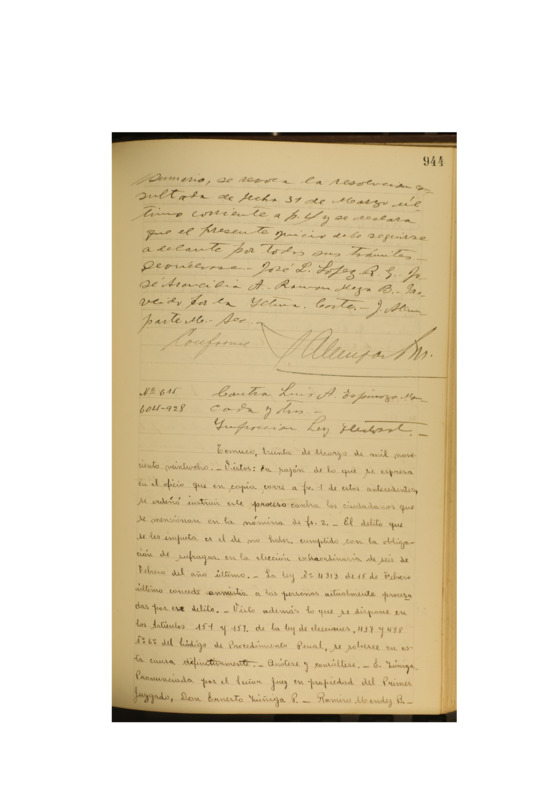 944
Sumario, se revoca la resolucion con-
sultada de fecha 31 de Marzo úl
timo corriente a fs. 4 y se declara
que el presente juicio debe seguirse
adelante por todos sus trámites.-
Devuélvase.- José L. López R. G. Jo-
sé Arancibia A. Ramon Meza B.- Pro-
veído por la Iltma. Corte.- J. Alem
parte M. Sec.
Conforme
Nº 615
604-928
Contra Luis A. Espinoza Mon-
cada y tros.-
Infraccion Ley Electoral.-
Temuco, treinta de Marzo de mil nove-
ciento veintiocho.- Vistos: En razón de lo que se expresa
en el oficio que en copia corre a fs. 1 de estos antecedentes,
se ordenó instruir este proceso contra los ciudadanos que
se mencionan en la nómina de fs. 2.- El delito que
se les imputa es el de no haber cumplido con la obliga-
ción de sufragar en la elección extraordinaria de seis de
Febrero del año último.- La ley Nº 4313 de 15 de Febrero
último concede amnistía a las personas actualmente procesa
das por ese delito.- Visto además lo que se dispone en
los Artículos 151 y 159 de la ley de elecciones, 437 y 438
Nº 6º del Código de Procedimiento Penal, se sobresee en es-
ta causa definitivamente.- Anótese y consúltese.- E. Zúñiga.
Pronunciada por el Señor Juez en propiedad del Primer
Juzgado, Don Ernesto Zúñiga P.- Ramiro Mendez B.-